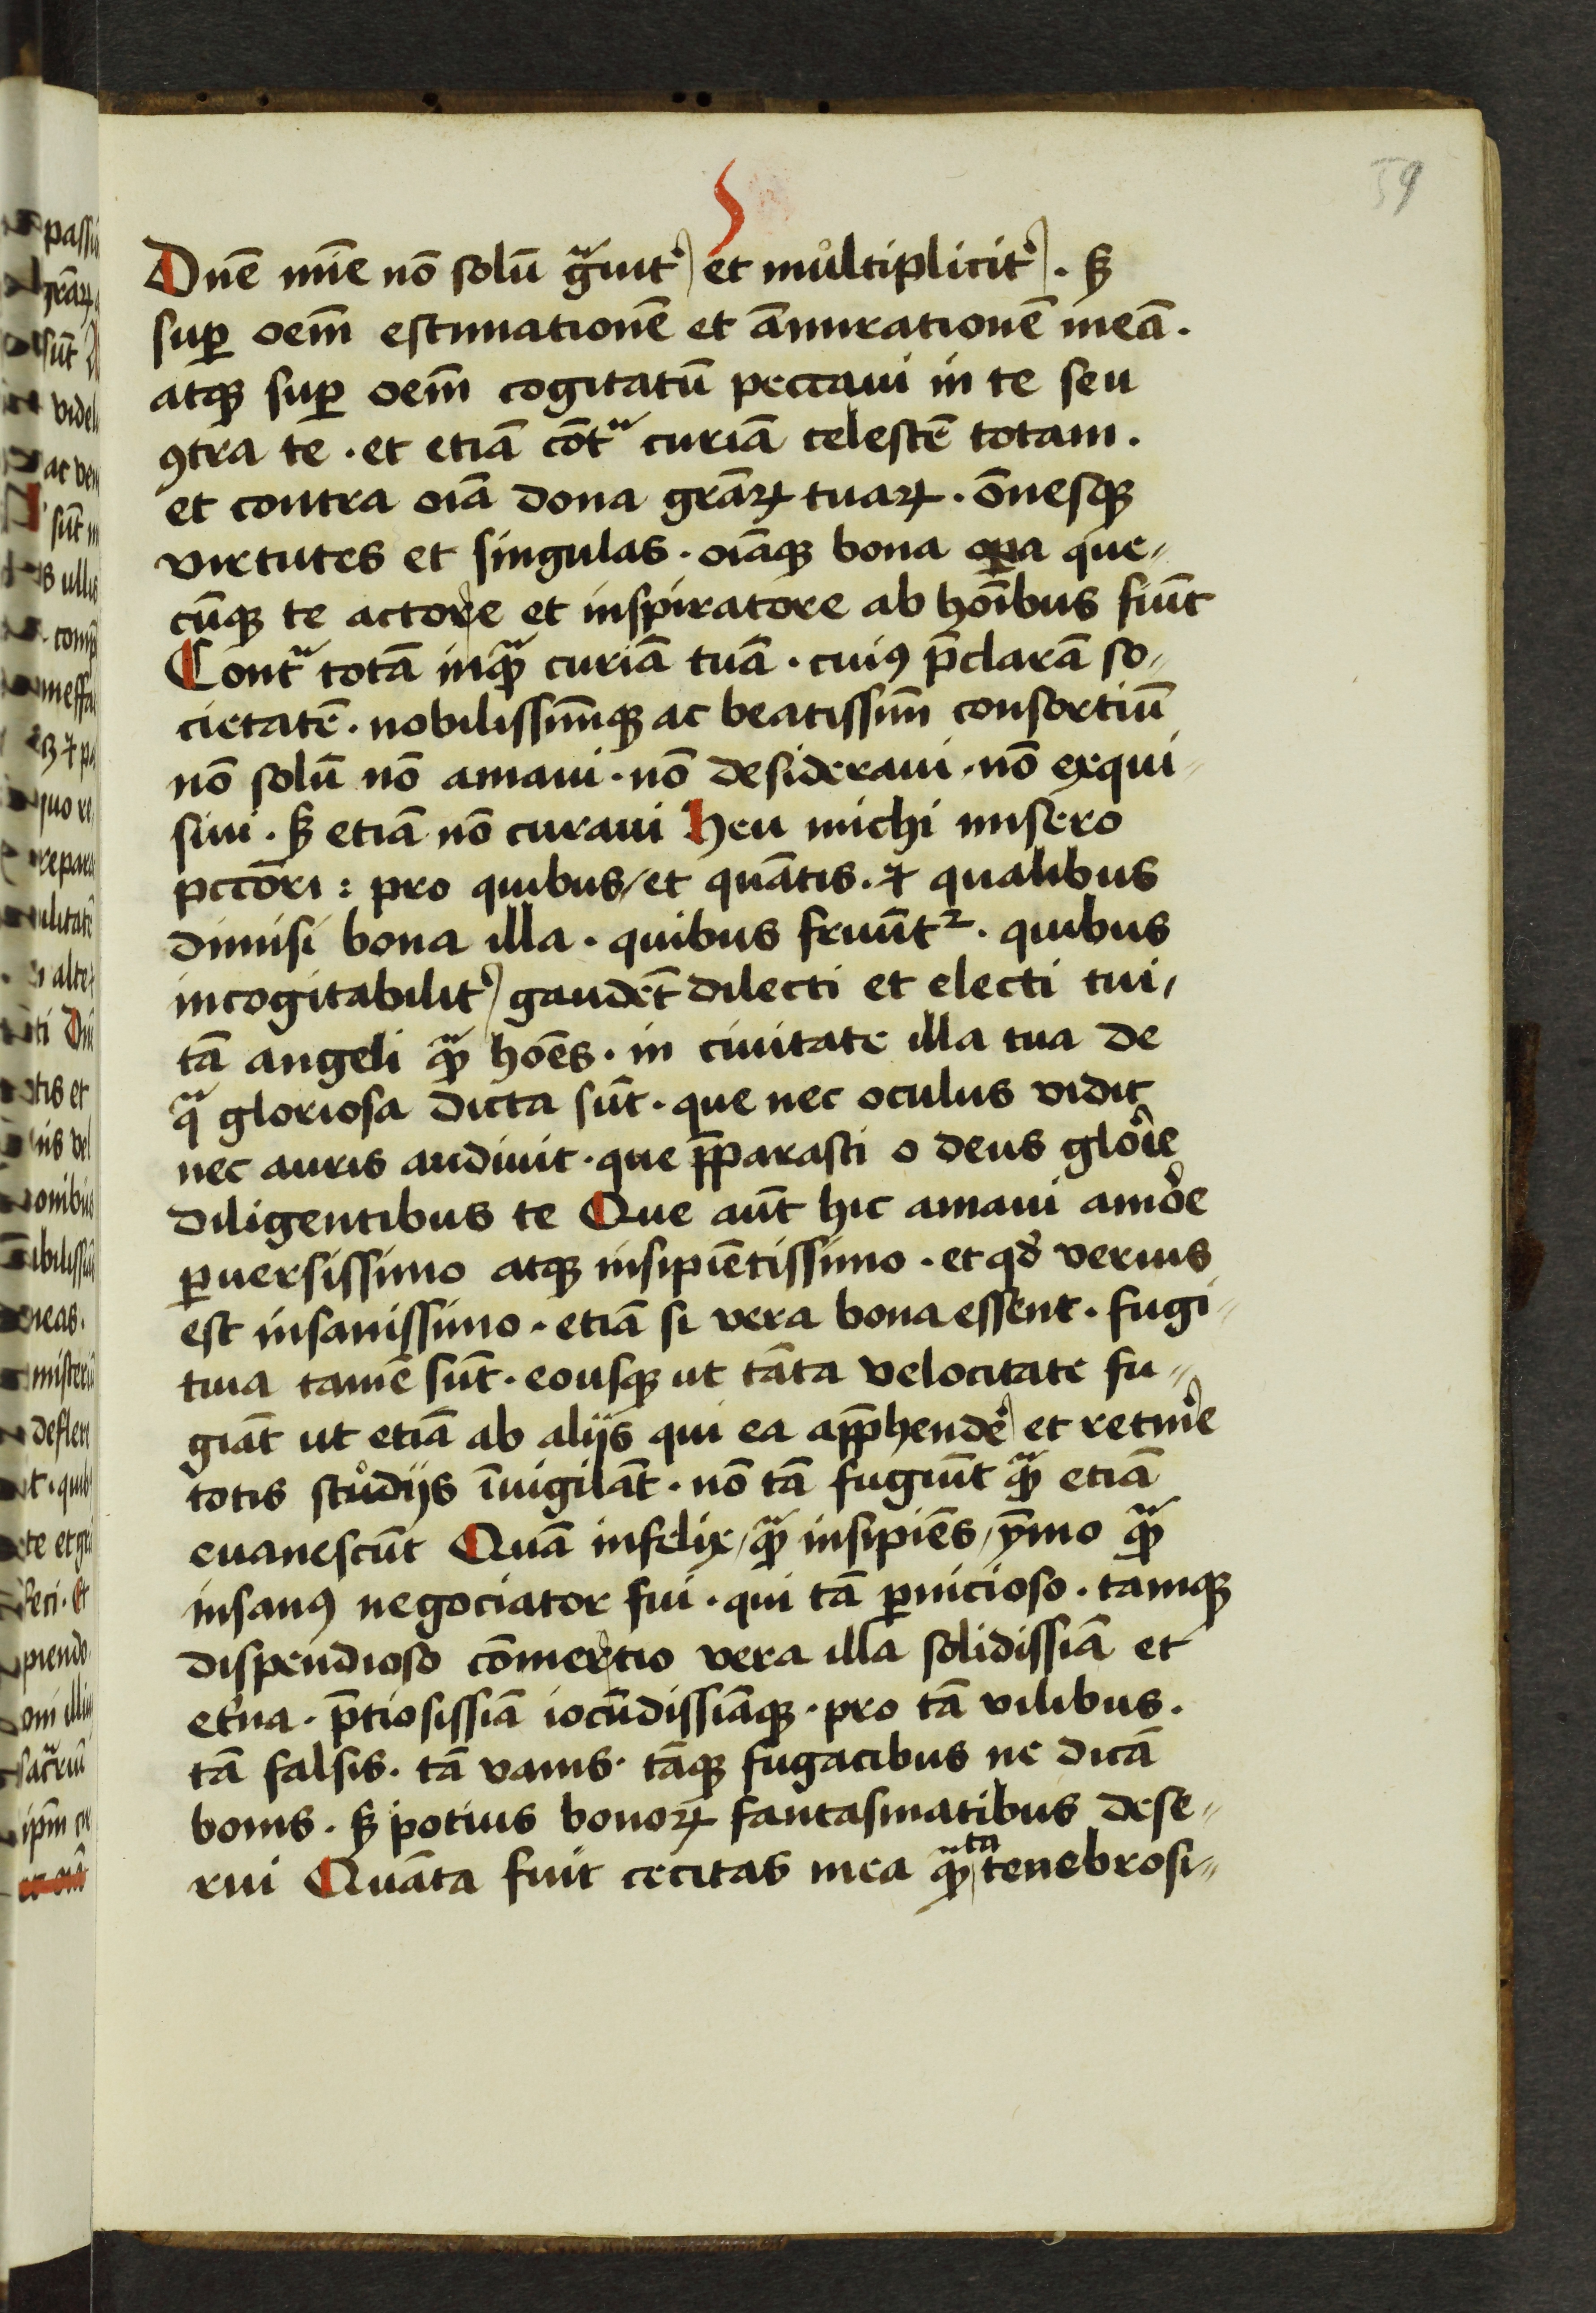 59
Dnē mīe nō solū gᵃuitʼ et můltiplicitʼ . sꝫ
suꝑ oēm estimationē et ām̄irationē meā .
atqꝫ suꝑ oēm cogitatū peccaui in te seu
ꝯtra te . et etiā cōtᵃ curiā celestē totam .
et contra oīa dona grāꝝ tuaꝝ . ōnesqꝫ
virtutes et singulas . oīaqꝫ bona oꝑa que〃
cūqꝫ te actore et inspiratore ab hoīb̄us fiūt
Contᵃ totā inqᵃꝫ curiā tuā . cuiꝰ p̄clarā so〃
cietatē . nobilissimūqꝫ ac beatissimū consortiū
nō solū nō amaui . nō desideraui . nō exqui〃
siui . sꝫ etiā nō curaui Heu michi misero
pctōri : pro quibus / et quātis . ⁊ qualibus
dimisi bona illa . quibus fruūtᷣ . quibus
incogitabilitʼ gaudēt dilecti et electi tui /
tā angeli qᵃꝫ hoēs . in ciuitate illa tua de
qᵃ gloriosa dicta sūt . que nec oculus vidit
nec auris audiuit . que p̄parasti o deus glorīe
diligentibus te Que aūt hic amaui amōre
ꝑuersissimo atqꝫ insipiētissimo . et qđ verius
est insanissimo . etiā si vera bona essent . fugi〃
tiua tamē sūt . eousqꝫ ut tāta velocitate fu〃
giāt ut etiā ab aliĳs qui ea app̄hendeʼ et retinʼe
totis stůdĳs īuigilāt . nō tā fugiūt qᵃꝫ etiā
euanescūt Quā infelix / qᵃꝫ insipiēs / ȳmo qᵃꝫ
insanꝰ negociator fui . qui tā ꝑnicioso . tamqꝫ
dispendioso cōmertio vera illa solidissīa et
etʼna . p̄tiosissīa iocūdissīaqꝫ . pro tā vilibus .
tā falsis . tā vanis . tāqꝫ fugacibus ne dicā
bonis . sꝫ potius bonoꝝ fantasmatibus dese〃
rui Quāta fuit cecitas mea qᵃꝫ ta tenebrosi〃